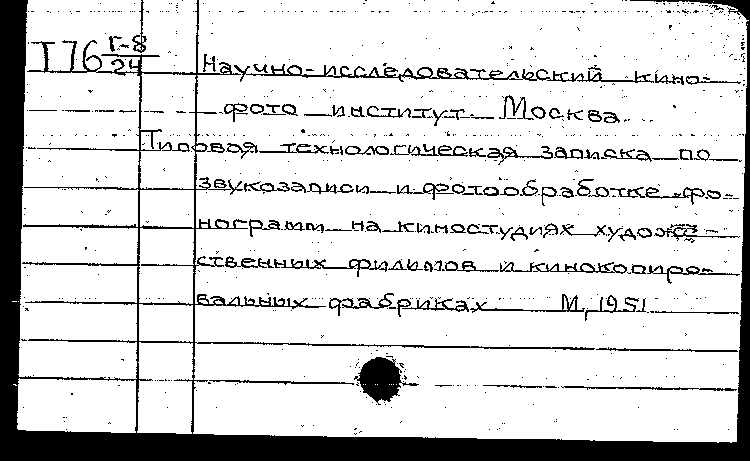 Т76 Г-8/24
Научно-исследовательский кино-
фото институт. Москва.
Типовая технологическая записка по
звукозаписи и фотообработке фо-
нограмм на киностудиях художе-
ственных фильмов и кинокопиро-
вальных фабриках М, 1951